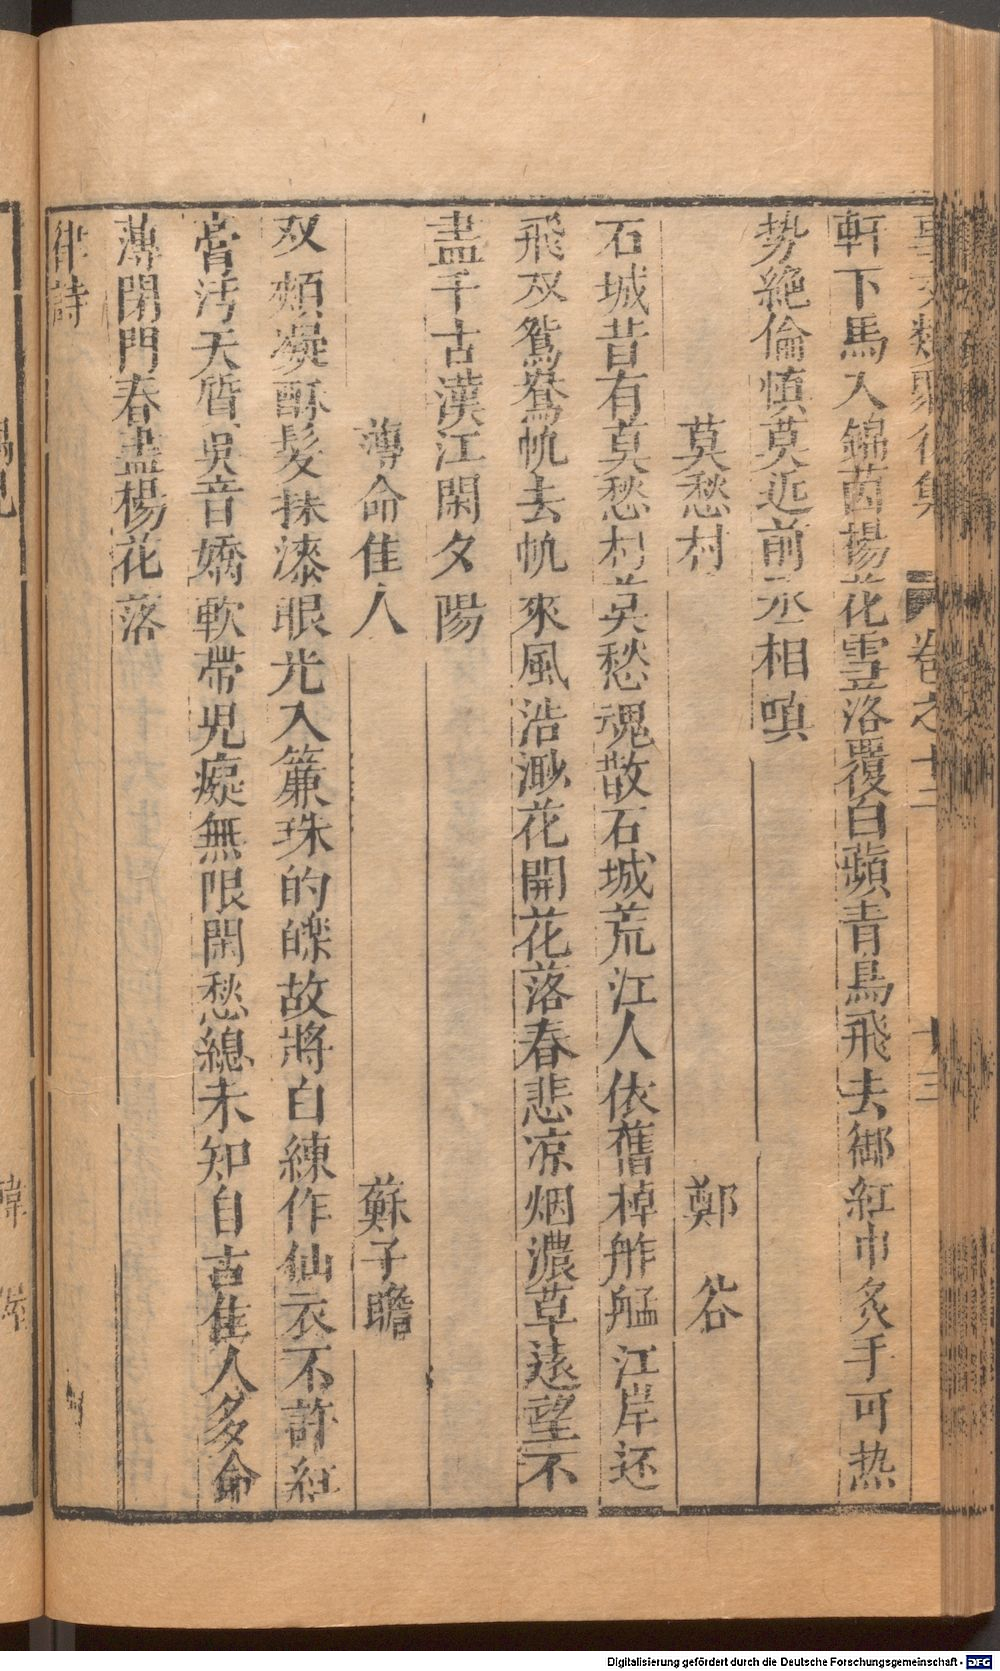 事文類聚後集 卷之十二 十三
軒下馬入錦茵楊花雪落覆白蘋青鳥飛去御紅巾炙手可热
势絶倫慎莫近前丞相嗔
莫愁村 鄭谷
石城昔有莫愁村莫愁魂散石城荒江人依舊棹舴艋江岸还
飛双鴛鴦帆去帆來風浩渺花開花落春悲凉烟濃草遠望不
盡千古漢江閑夕陽
薄命佳人 蘇子瞻
双頰凝酥髮抹漆眼光入簾珠的皪故將白練作仙衣不許紅
膏汚天質吳音嬌軟帶児癡無限閑愁緫未知自古佳人多命
薄閉門春盡楊花落
律詩
Digitalisierung gefördert durch die Deutsche Forschungsgemeinschaft - DFG